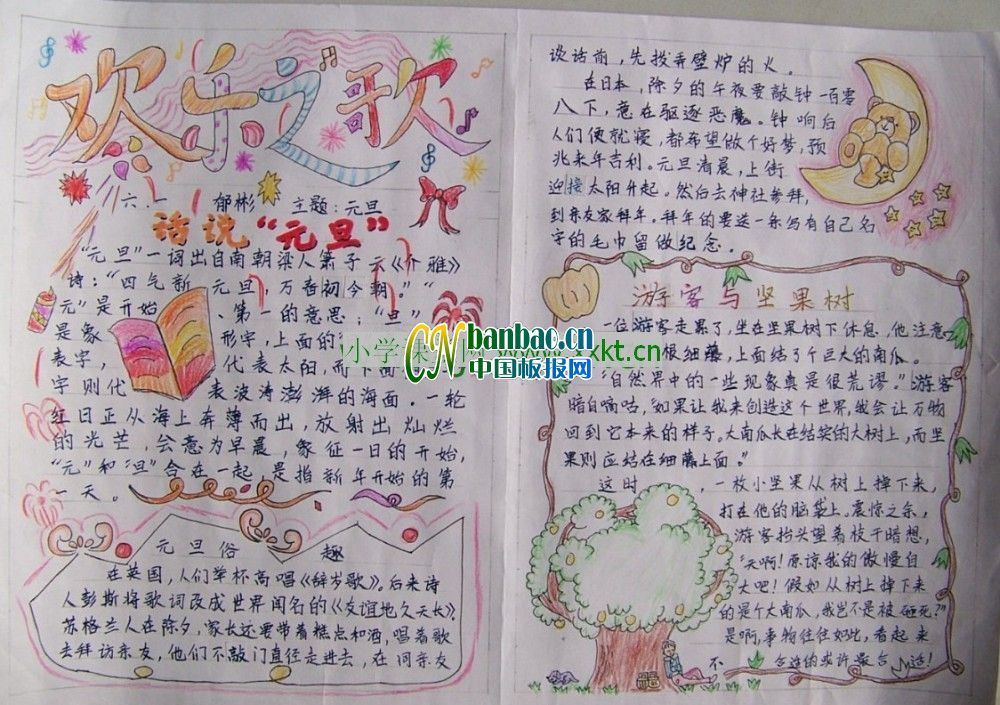 欢乐之歌
六.一 郁彬 主题:元旦
话说“元旦”
“元旦”一词出自南朝梁人萧子云《介雅》
诗:“四气新元旦,万春初今朝”“
元”是开始、第一的意思;“旦”
是象形字,上面的
表字,代表太阳,而下面
字则代表波涛澎湃的海面.一轮
红日正从海上奔薄而出,放射出灿烂
的光芒,会意为早晨,象征一日的开始,
“元”和“旦”合在一起,是指新年开始的第
一天。
元旦俗趣
在英国,人们举杯高唱《辞岁歌》.后来诗
人彭斯将歌词改成世界闻名的《友谊地久天长》.
苏格兰人在除夕,家长还要带着糕点和酒,唱着歌
去拜访亲友,他们不敲门直径走进去,在同亲友
谈话前,先拨弄壁炉的火。
在日本,除夕的午夜要敲钟一百零
八下,意在驱逐恶魔。钟响后
人们便就寝,都希望做个好梦,预
兆来年吉利。元旦清晨,上街
迎接太阳升起。然后去神社参拜,
到亲友家拜年。拜年的要送一条写有自己名
字的毛巾留做纪念。
游客与坚果树
一位游客走累了,坐在坚果树下休息,他注意
很细藤,上面结了个巨大的南瓜
“自然界中的一些现象真是很荒谬。”游客
暗自嘀咕,“如果让我来创造这个世界,我会让万物
回到它本来的样子。大南瓜长在结实的大树上,而坚
果则应结在细藤上面。”
这时,一枚小坚果从树上掉下来,
打在他的脑袋上。震惊之余,
游客抬头望着枝干暗想,
“天啊!原谅我的傲慢自
大吧!假如从树上掉下来
的是个大南瓜,我岂不是被砸死?”
是啊,事物往往如此,看起来
不合适的或许最合适!
小学课 网 www. xxkt.cn
CN banbao.cn
中国板报网